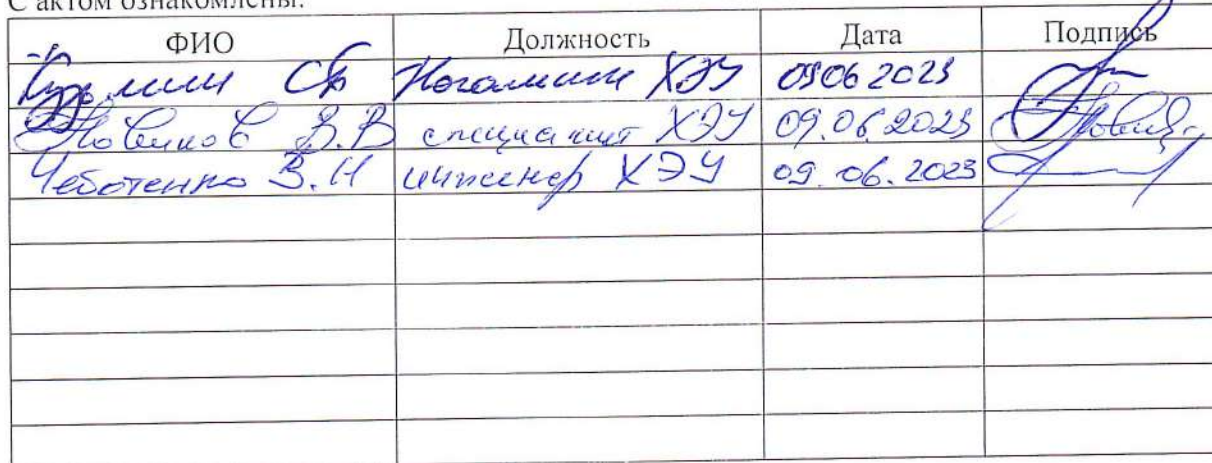 С актом ознакомлены:
ФИО Должность Дата Подпись
ХЭУ 09 06 2023
Новиков В.В специалист ХЭУ 09.06.2023
Чеботенко В.Н инженер ХЭУ 09.06.2023